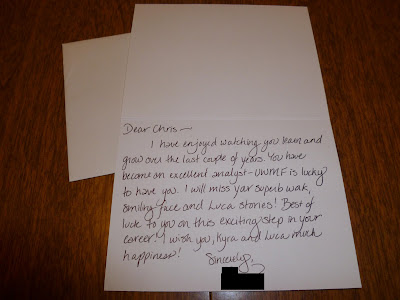 Dear Chris~
I have enjoyed watching you learn and
grow over the last couple of years. You have
become an excellent analyst-UWMF is lucky
to have you. I will miss your superb work,
smiling face and Luca stories! Best of
luck to you on this exciting step in your
career! I wish you, Kyra and Luca much
happiness!
Sincerely,